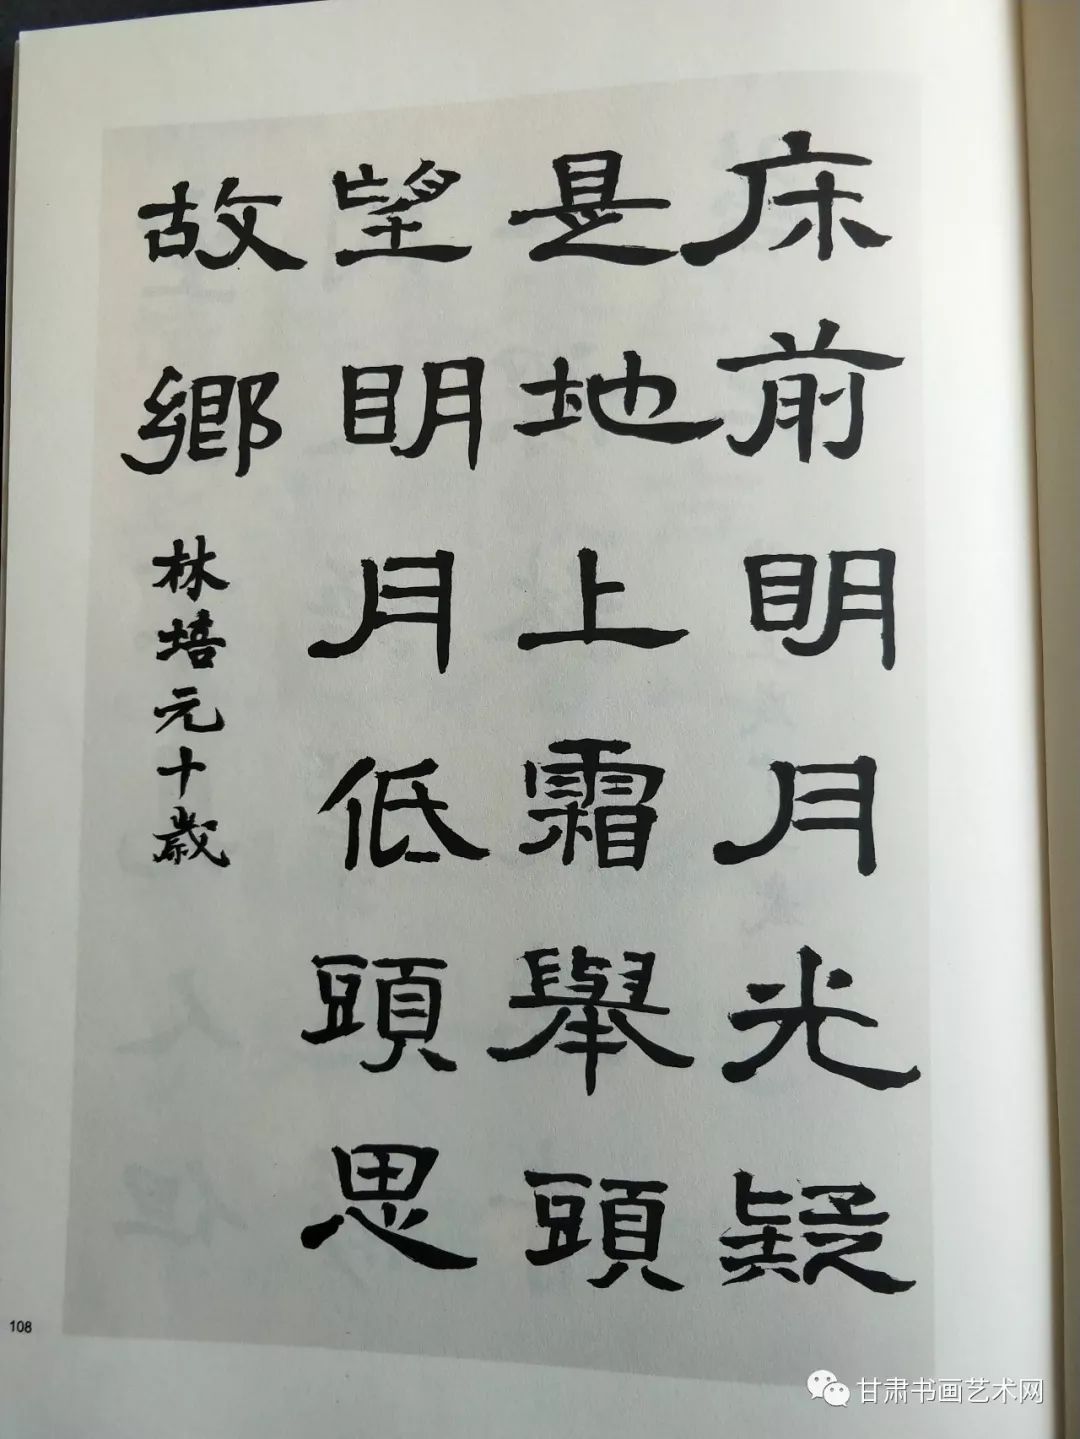 床前明月光疑
是地上霜舉頭
望明月低頭思
故鄉
林培元十歲
108
甘肃书画艺术网